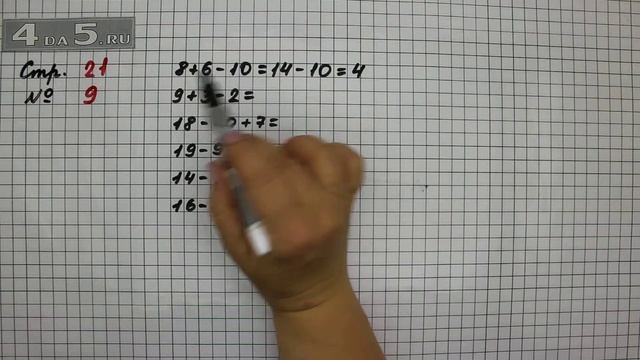 4DA5.RU
Стр. 21
№ 9
8+6-10=14-10=4
9+3-2=
18- 0+7=
19-9
14-
16-